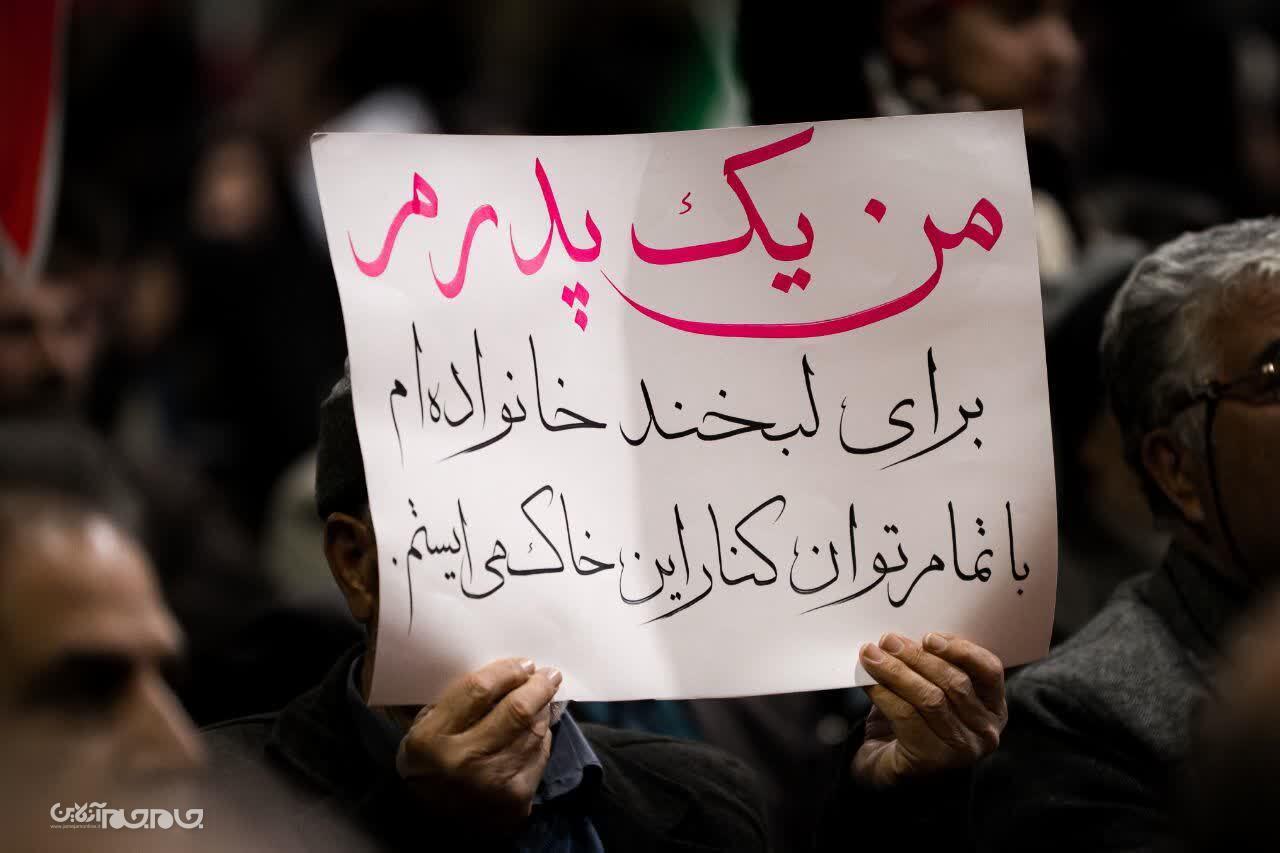 من یک پدرم
برای لبخند خانواده‌ام
با تمام توان کنار این خاک می‌ایستم.
جام‌جم آنلاین
www.jamejamonline.ir